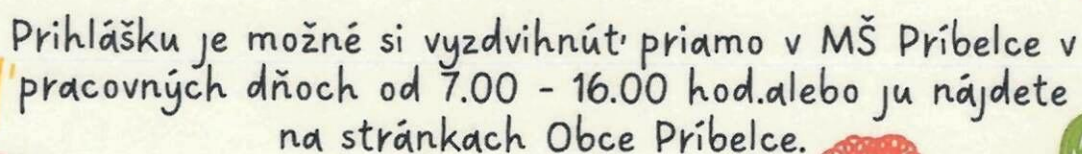 Prihlášku je možné si vyzdvihnúť priamo v MŠ Príbelce v
pracovných dňoch od 7.00 - 16.00 hod.alebo ju nájdete
na stránkach Obce Príbelce.